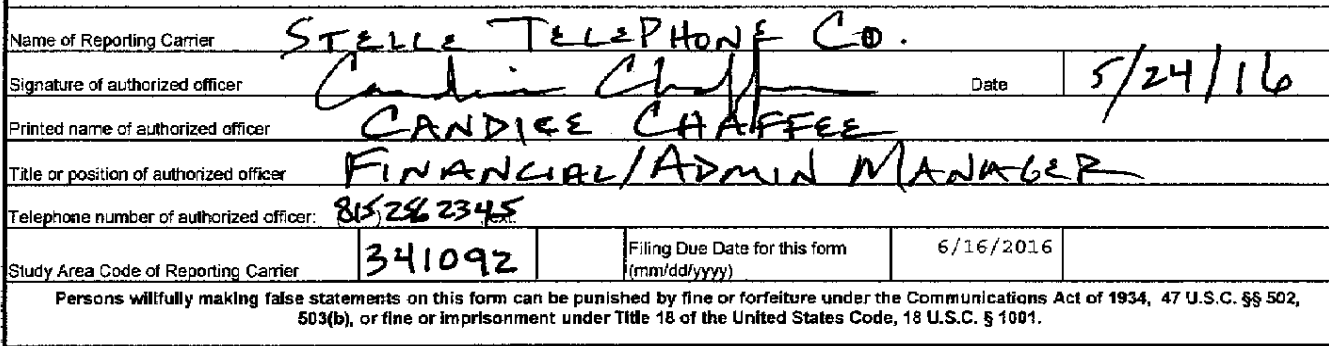 Name of Reporting Carrier STELLE TELEPHONE CO.
Signature of authorized officer Candice Chaffee Date 5/24/16
Printed name of authorized officer CANDICE CHAFFEE
Title or position of authorized officer FINANCIAL/ADMIN MANAGER
Telephone number of authorized officer: 815 256 2345 ext.
Study Area Code of Reporting Carrier 341092 Filing Due Date for this form (mm/dd/yyyy) 6/16/2016
Persons willfully making false statements on this form can be punished by fine or forfeiture under the Communications Act of 1934, 47 U.S.C. §§ 502,
503(b), or fine or imprisonment under Title 18 of the United States Code, 18 U.S.C. § 1001.